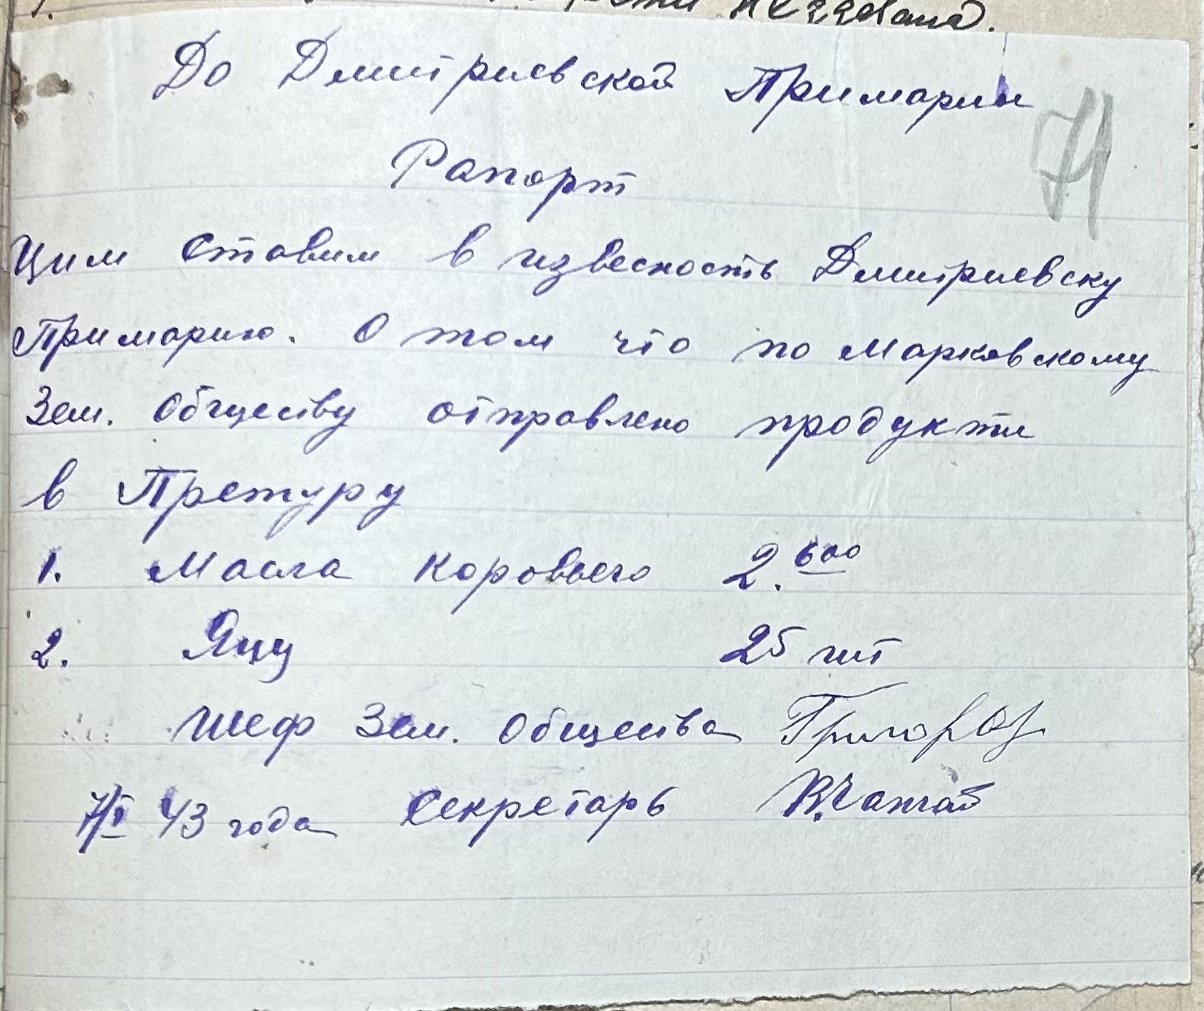 До Дмитриевской Примарии
71
Рапорт
Цим ставим в извесность Дмитриевску
Примарию. О том что по Марковскому
Зем. обществу отправлено продукти
в Претуру
1. Масла коровьего 2.600
2. Яиц 25 шт
Шеф Зем. общества
7/I 43 года Секретарь